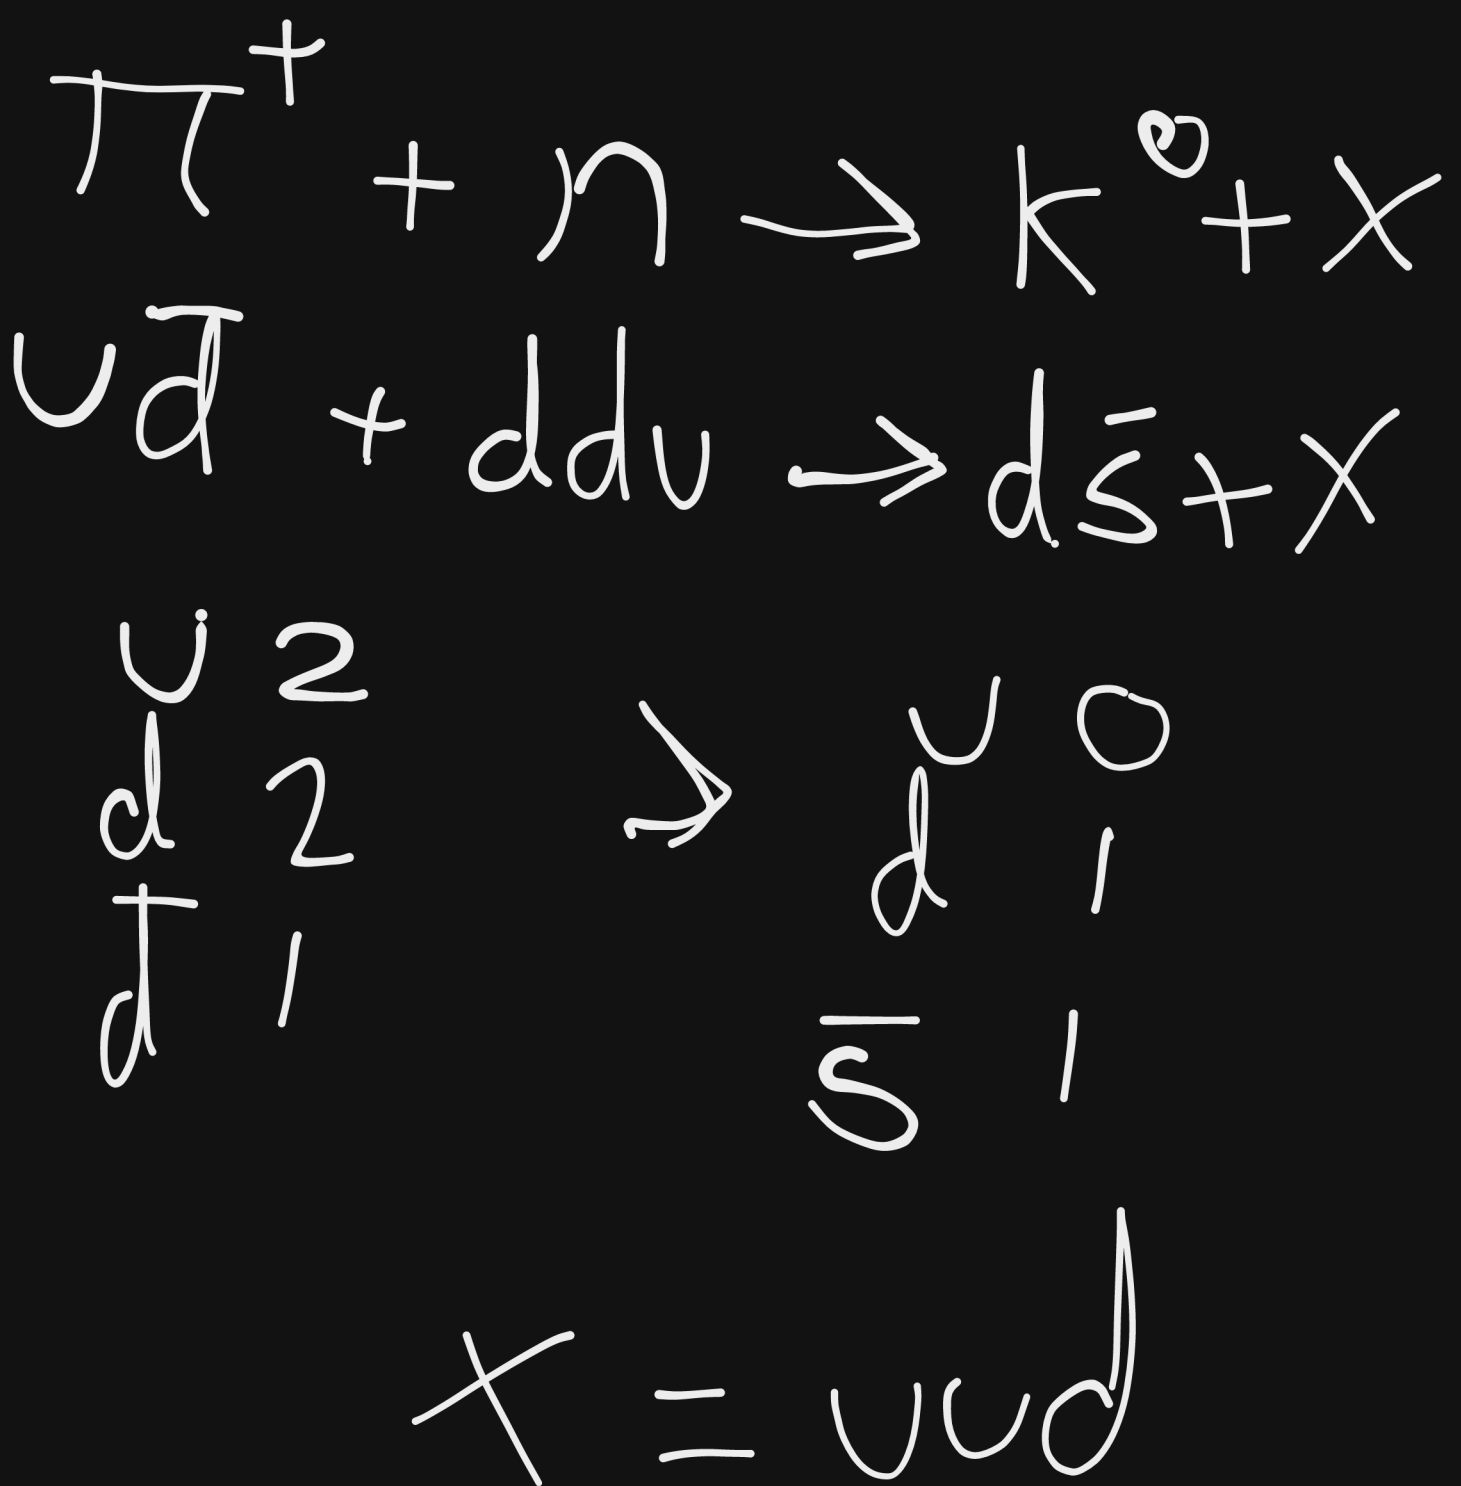 π⁺ + n → k⁰ + x
ud̅ + ddu → ds̅ + x
u 2 → u 0
d 2 d 1
d̅ 1 s̅ 1
x = uud